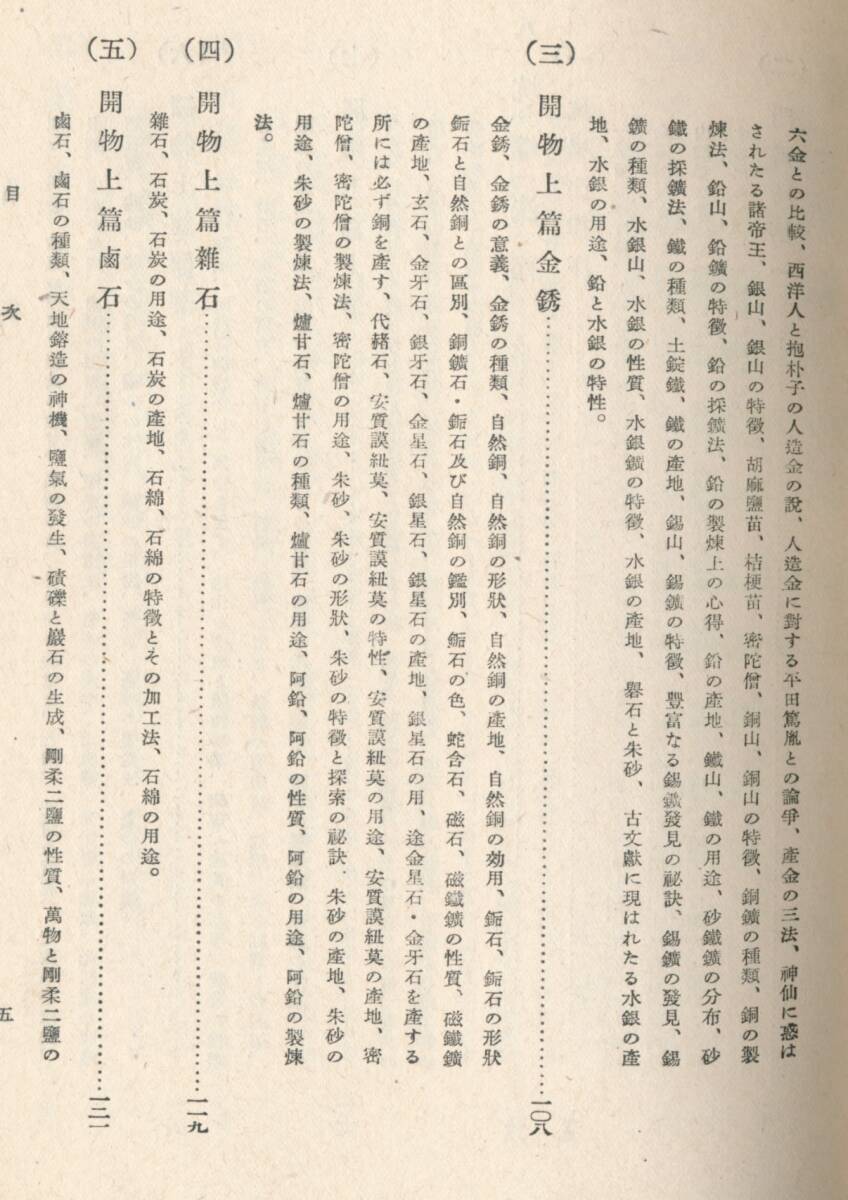 六金との比較、西洋人と抱朴子の人造金の說、人造金に對する平田篤胤との論爭、產金の三法、神仙に惑は
されたる諸帝王、銀山、銀山の特徵、胡麻鹽苗、桔梗苗、密陀僧、銅山、銅山の特徵、銅鑛の種類、銅の製
煉法、鉛山、鉛鑛の特徵、鉛の採鑛法、鉛の製煉上の心得、鉛の產地、鐵山、鐵の用途、砂鐵鑛の分布、砂
鐵の採鑛法、鐵の種類、土錠鐵、鐵の產地、錫山、錫鑛の特徵、豐富なる錫鑛發見の祕訣、錫鑛の發見、錫
鑛の種類、水銀山、水銀の性質、水銀鑛の特徵、水銀の產地、礜石と朱砂、古文獻に現はれたる水銀の產
地、水銀の用途、鉛と水銀の特性。
(三) 開物上篇金銹……………………一〇八
金銹、金銹の意義、金銹の種類、自然銅、自然銅の形狀、自然銅の產地、自然銅の効用、鉐石、鉐石の形狀
鉐石と自然銅との區別、銅鑛石・鉐石及び自然銅の鑑別、鉐石の色、蛇含石、磁石、磁鐵鑛の性質、磁鐵鑛
の產地、玄石、金牙石、銀牙石、金星石、銀星石、銀星石の產地、銀星石の用、途金星石・金牙石を產する
所には必ず銅を產す、代赭石、安質謨紐莫、安質謨紐莫の特性、安質謨紐莫の用途、安質謨紐莫の產地、密
陀僧、密陀僧の製煉法、密陀僧の用途、朱砂、朱砂の形狀、朱砂の特徵と探索の祕訣、朱砂の產地、朱砂の
用途、朱砂の製煉法、爐甘石、爐甘石の種類、爐甘石の用途、阿鉛、阿鉛の性質、阿鉛の用途、阿鉛の製煉
法。
(四) 開物上篇雜石……………………一一九
雜石、石炭、石炭の用途、石炭の產地、石綿、石綿の特徵とその加工法、石綿の用途。
(五) 開物上篇鹵石……………………一二一
鹵石、鹵石の種類、天地鎔造の神機、鹽氣の發生、磧礫と巖石の生成、剛柔二鹽の性質、萬物と剛柔二鹽の
目次 五